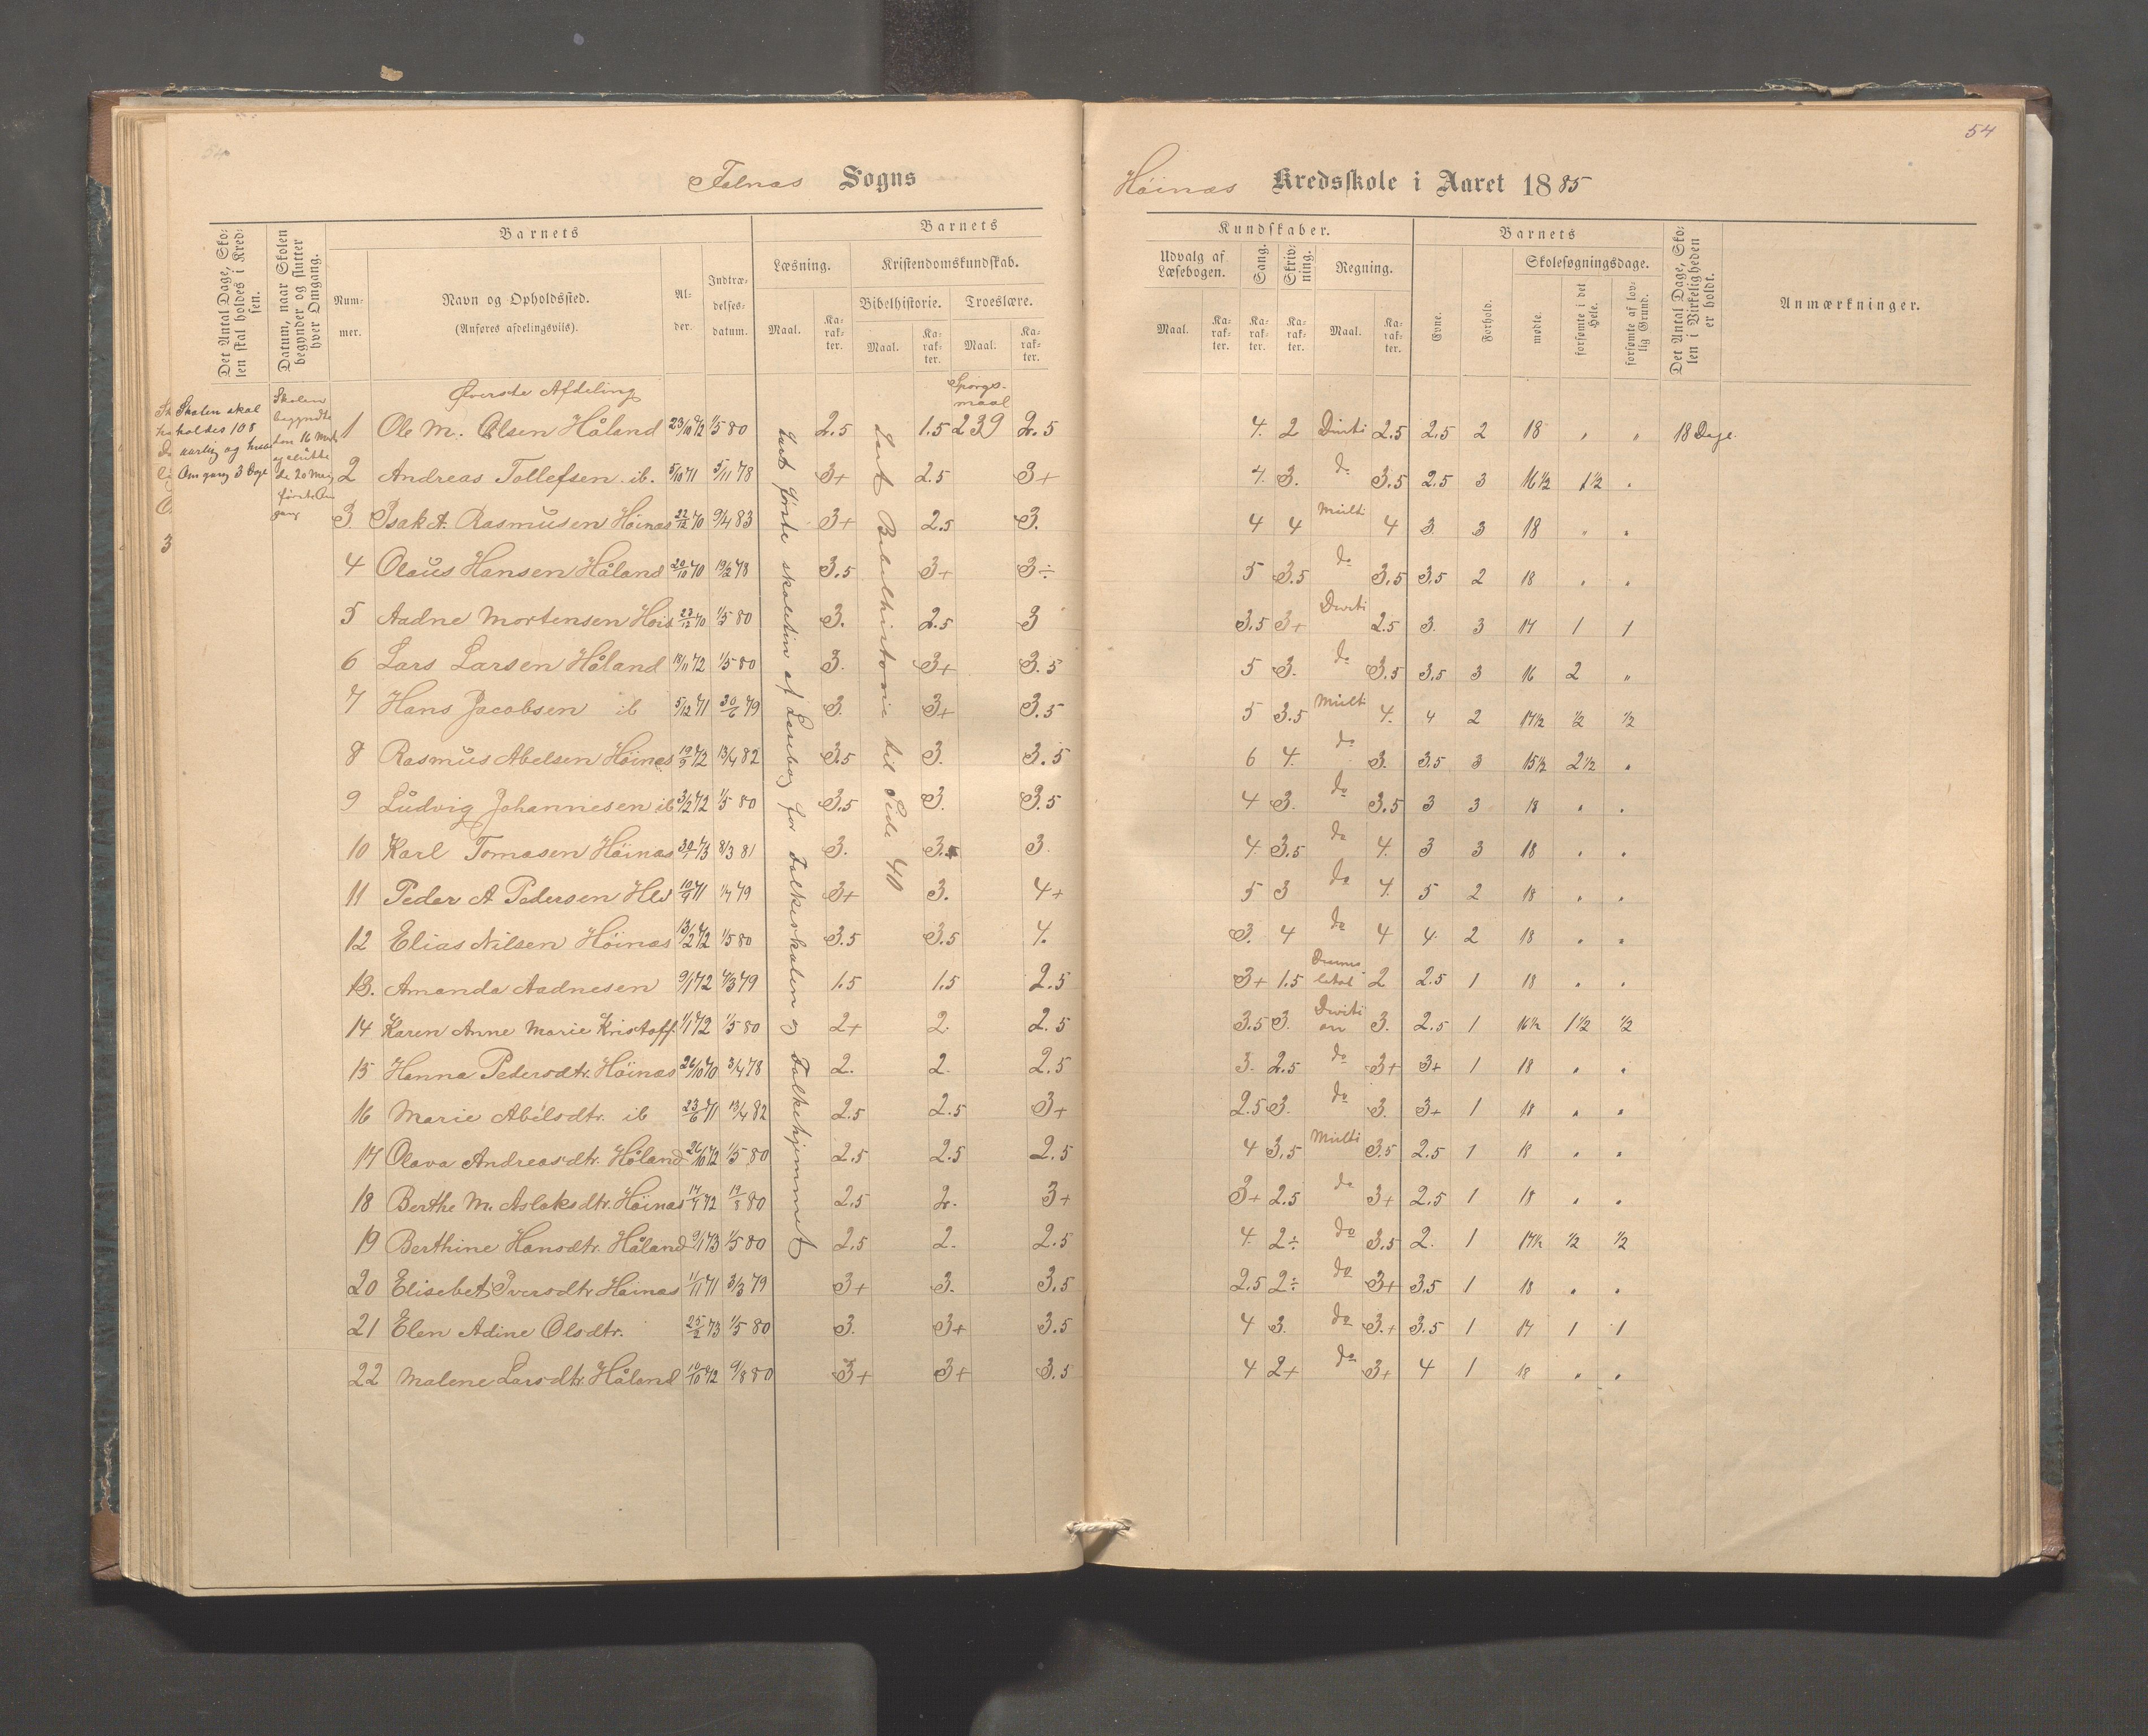 54
Falnæs Sogns
Høinæs Kredsskole i Aaret 1885
Det Antal Dage, Skolen skal holdes i Kredsen.
Datum, naar Skolen begynder og slutter hver Omgang.
Barnets
Nummer.
Navn og Opholdssted.
(Anføres afdelingsviis).
Alder.
Indtrædelses-datum.
Barnets
Læsning.
Maal.
Karakter.
Kristendomskundskab.
Bibelhistorie.
Maal.
Karakter.
Troeslære.
Maal.
Karakter.
Kundskaber.
Udvalg af Læsebogen.
Maal.
Karakter.
Sang.
Karakter.
Skrivning.
Karakter.
Regning.
Maal.
Karakter.
Barnets
Evne.
Forhold.
Skolesøgningsdage.
mødte.
forsømte i det Hele.
forsømte af lovlig Grund.
Det Antal Dage, Skolen i Virkeligheden er holdt.
Anmærkninger.
Skolen skal
holdes 108
aarlig og hver
Omgang 3 Dage
Skolen
begyndte
den 16 Marts
og slutte
de 20 Mai
første Om
gang
Øverste Afdeling
Spørgs-
maal
Læst første skoletrin af Læsebog for Folkeskolen og Folkehjemmet
Læst Bibelhistorie til Side 40
1 Ole M. Olsen Håland 23/10 72 1/5 80 2.5 1.5 239 2.5 4. 2 Diviti 2.5 2.5 2 18 " " 18 Dage
2 Andreas Tollefsen ib. 5/10 71 5/11 78 3+ 2.5 3+ 4. 3. do 3.5 2.5 3 16 1/2 1 1/2 "
3. Isak A. Rasmusen Høinæs 22/12 70 9/4 83 3+ 2.5 3. 4 4 Multi 4 3. 3 18 " "
4 Olaus Hansen Håland 20/10 70 19/2 78 3.5 3+ 3÷ 5 3.5 do 3.5 3.5 2 18 " "
5 Aadne Mortensen 23/12 70 1/5 80 3. 2.5 3 3.5 3+ Diviti 2.5 3. 3 17 1 1
6 Lars Larsen Håland 18/11 72 1/5 80 3. 3+ 3.5 5 3. do 3.5 3.5 3 16 2 "
7 Hans Jacobsen ib 5/12 71 30/6 79 3. 3+ 3.5 5 3.5 Multi 4. 4 2 17 1/2 1/2 1/2
8 Rasmus Abelsen Høinæs 19/5 72 13/4 82 3.5 3. 3.5 6 4. do 3. 3.5 3 15 1/2 2 1/2 "
9 Ludvig Johannesen ib 3/2 72 1/5 80 3.5 3. 3.5 4 3. do 3.5 3 3 18 " "
10 Karl Tomasen Høinæs 30/1 73 8/3 81 3. 3.+ 3. 4. 3.5 do 4. 3 3 18 " "
11 Peder A Pedersen 10/9 71 1/7 79 3+ 3. 4+ 5 3 do 4. 5 2 18 " "
12 Elias Nilsen Høinæs 13/2 72 1/5 80 3.5 3.5 4. 3. 4 do 4 4. 2 18 " "
13. Amanda Aadnesen 9/1 72 4/3 79 1.5 1.5 2.5 3+ 1.5 2 2.5 1 18 " "
14 Karen Anne Marie Kristoff. 1/1 72 1/5 80 2+ 2. 2.5 3.5 3. Diviti on 3. 2.5 1 16 1/2 1 1/2 1/2
15 Hanna Pedersdtr. Høinæs 26/10 70 3/4 78 2. 2. 2.5 3. 2.5 do 3+ 3+ 1 18 " "
16 Marie Abelsdtr. ib 23/6 71 13/4 82 2.5 2.5 3+ 2.5 3. do 3. 3+ 1 18 " "
17 Olava Andreasdtr. Håland 26/10 72 1/5 80 2.5 2.5 2.5 4 3.5 Multi 3.5 2.5 1 18 " "
18 Berthe M. Aslaksdtr. Høinæs 17/4 72 19/8 80 2.5 2. 3+ 3+ 2.5 do 3+ 2.5 1 18 " "
19 Berthine Hansdtr. Håland 9/1 73 1/5 80 2.5 2. 2.5 4. 2÷ do 3.5 2. 1 17 1/2 1/2 1/2
20 Elisebet Iversdtr Høinæs 1/11 71 3/3 79 3+ 3. 3.5 2.5 2÷ do 3+ 3.5 1 18 " "
21 Elen Adine Olsdtr. 25/2 73 1/5 80 3. 3+ 3.5 4 3. do 3.+ 3.5 1 17 1 1
22 Malene Larsdtr. Håland 10/10 72 9/8 80 3+ 3+ 3.5 4 2+ do 3+ 4 1 18 " "